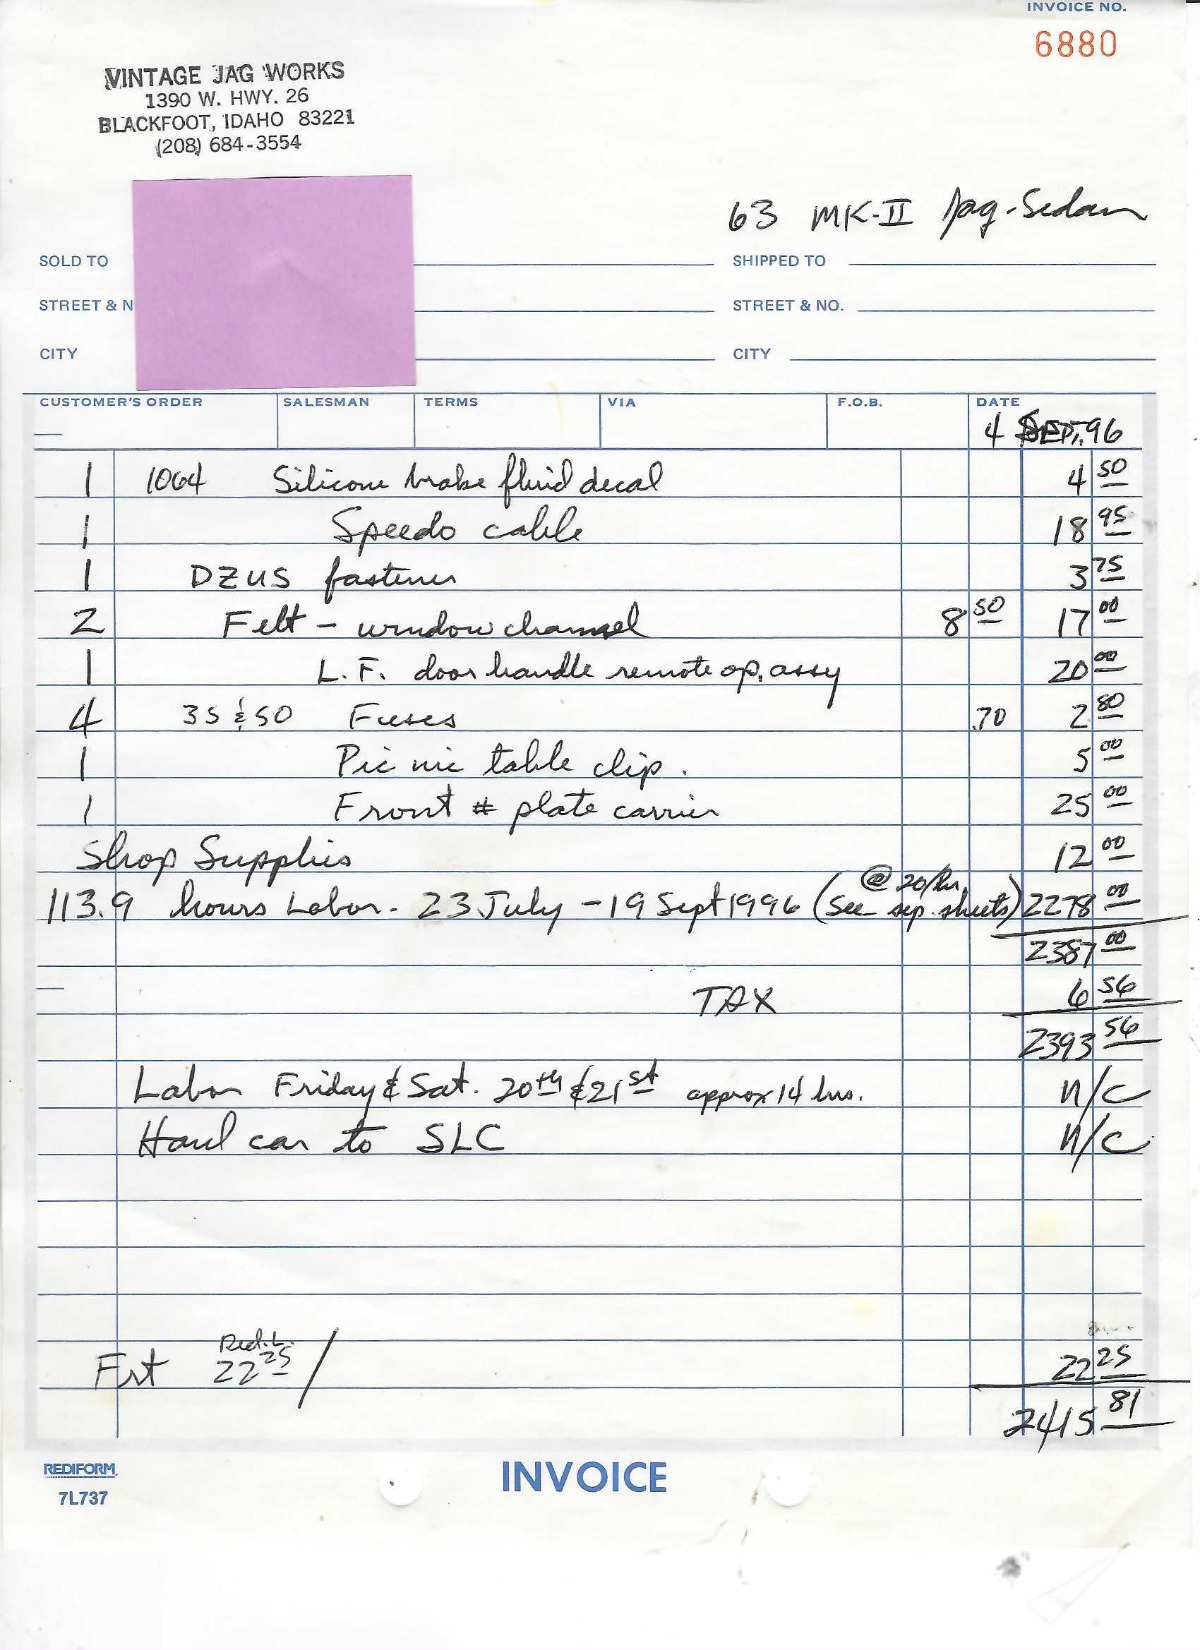 INVOICE NO.
6880
VINTAGE JAG WORKS
1390 W. HWY. 26
BLACKFOOT, IDAHO 83221
(208) 684-3554
63 MK-II Jag-Sedan
SOLD TO SHIPPED TO
STREET & N STREET & NO.
CITY CITY
CUSTOMER'S ORDER SALESMAN TERMS VIA F.O.B. DATE
4 SEP, 96
1 1064 Silicone brake fluid decal 4 50
1 Speedo cable 18 95
1 DZUS fastener 3 75
2 Felt - window channel 8 50 17 00
1 L.F. door handle remote op. assy 20 00
4 35 & 50 Fuses .70 2 80
1 Pic nic table clip. 5 00
1 Front # plate carrier 25 00
Shop Supplies 12 00
113.9 hours Labor - 23 July - 19 Sept 1996 (See sep. sheets) @ 20/hr. 2278 00
2387 00
TAX 6 56
2393 56
Labor Friday & Sat. 20th & 21st approx 14 hrs. n/c
Haul car to SLC n/c
Red.L.
Frt 22 25 / 22 25
2415 81
REDIFORM
7L737
INVOICE